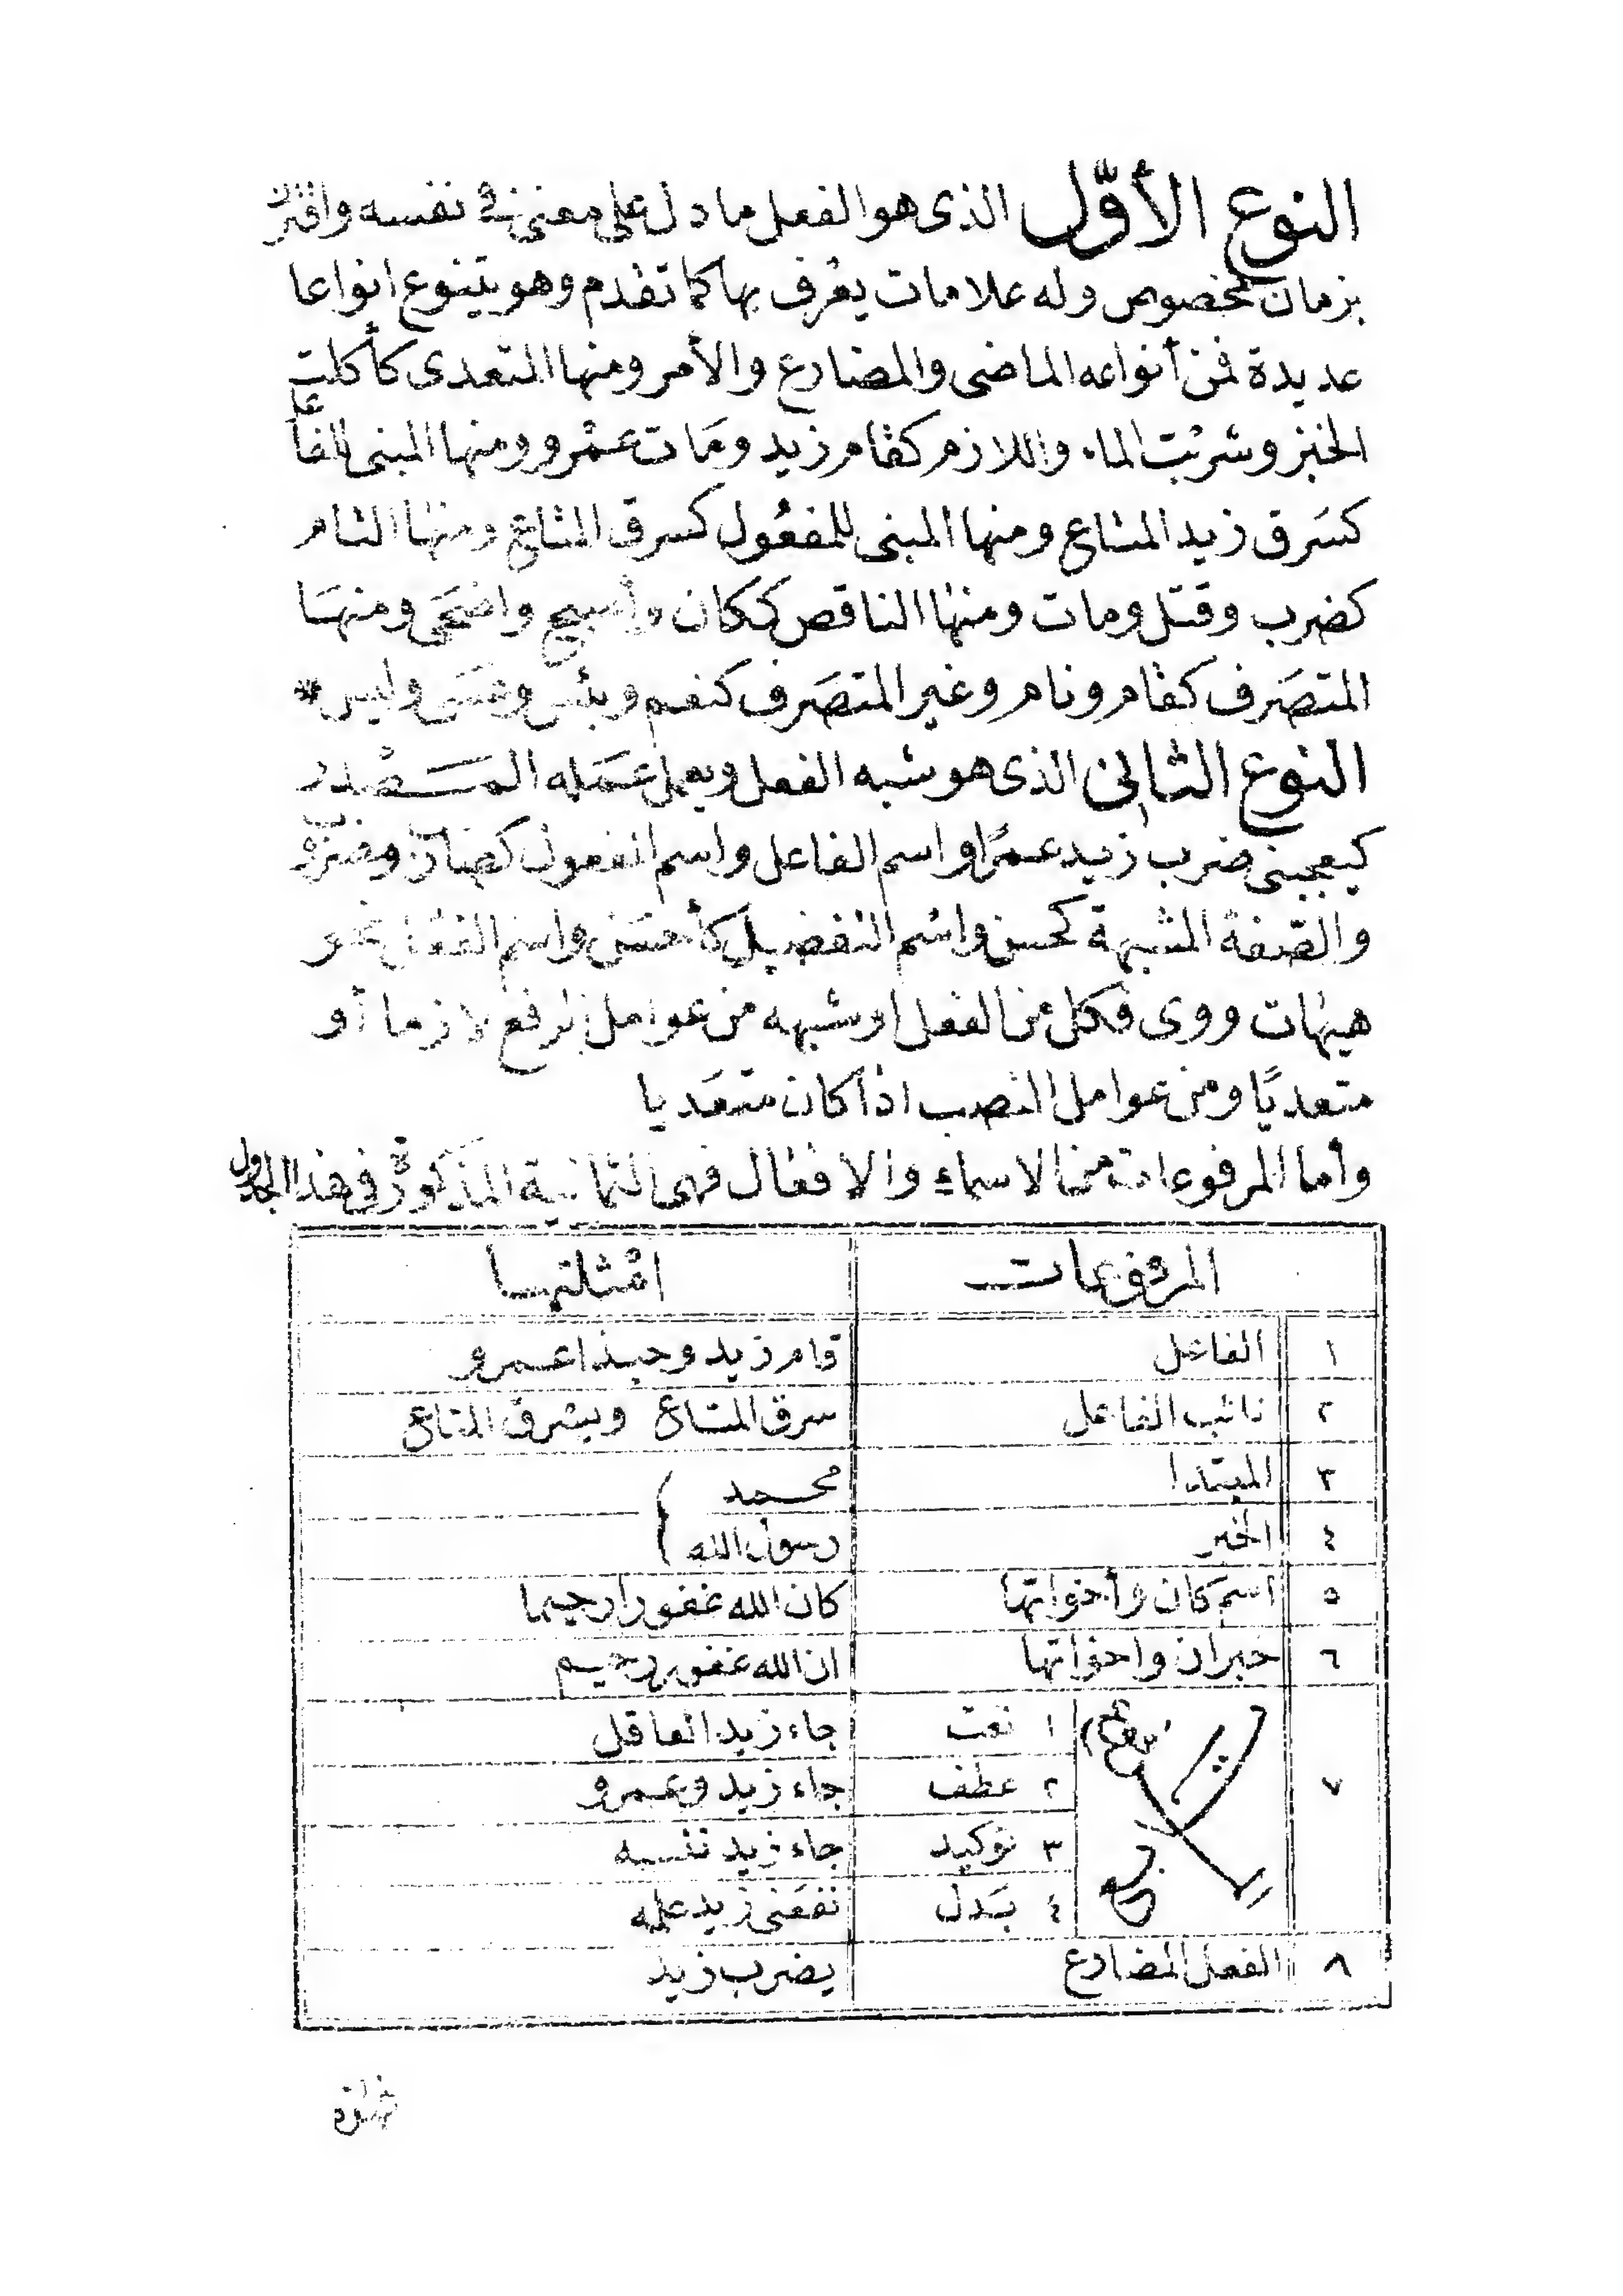 النوع الأوّل الذى هو الفعل ما دل على معنى فى نفسه واقترن
بزمان مخصوص وله علامات يعرف بها كما تقدم وهو يتنوع انواعا
عديدة فمن أنواعه الماضى والمضارع والأمر ومنها المتعدى كأكلت
الخبز وشربت الماء واللازم كقام زيد ومَات عمْرو ومنها المبنى للفاعل
كسَرق زيد المتاع ومنها المبنى للمفعُول كسرق المتاع ومنها التام
كضرب وقتل ومات ومنها الناقص ككان وأصبح واضحَى ومنهَا
المتصَرف كقام ونام وغير المتصَرف كنعم وبئس وعسَى وليس *
النوع الثانى الذى هو شبه الفعل ويعمل عمَله المَصْدر
كيعجبنى ضرب زيد عمرًا واسم الفاعل واسم المفعول كضارب ومضروب
والصّفة المشبهة كحسن واسْم التفضيل كأحسَن واسم الفعل نحو
هيهات ووى فكل من الفعل أو شبهه من عوامل الرفع لازما أو
متعديًا ومن عوامل النصب اذا كان متعَديا
وأما المرفوعات من الاسماء والافعال فهى الثمانية المذكورة فى هذا الجدول
المرفوعات امْثلتها
١ الفاعل قام زيد وحبذا عمرو
٢ نائب الفاعل سرق المتاع ويسْرق المتاع
٣ المبتدا محمد
٤ الخبر رسول الله
٥ اسم كان وأخواتها كان الله غفورا رحيما
٦ خبر ان واخواتها ان الله غفور رحيم
٧ تابع المرفوع ١ نعت جاء زيد العاقل
٢ عطف جاء زيد وعمرو
٣ توكيد جاء زيد نفسه
٤ بَدل نفعَنى زيد علمه
٨ الفعل المضارع يضرب زيد